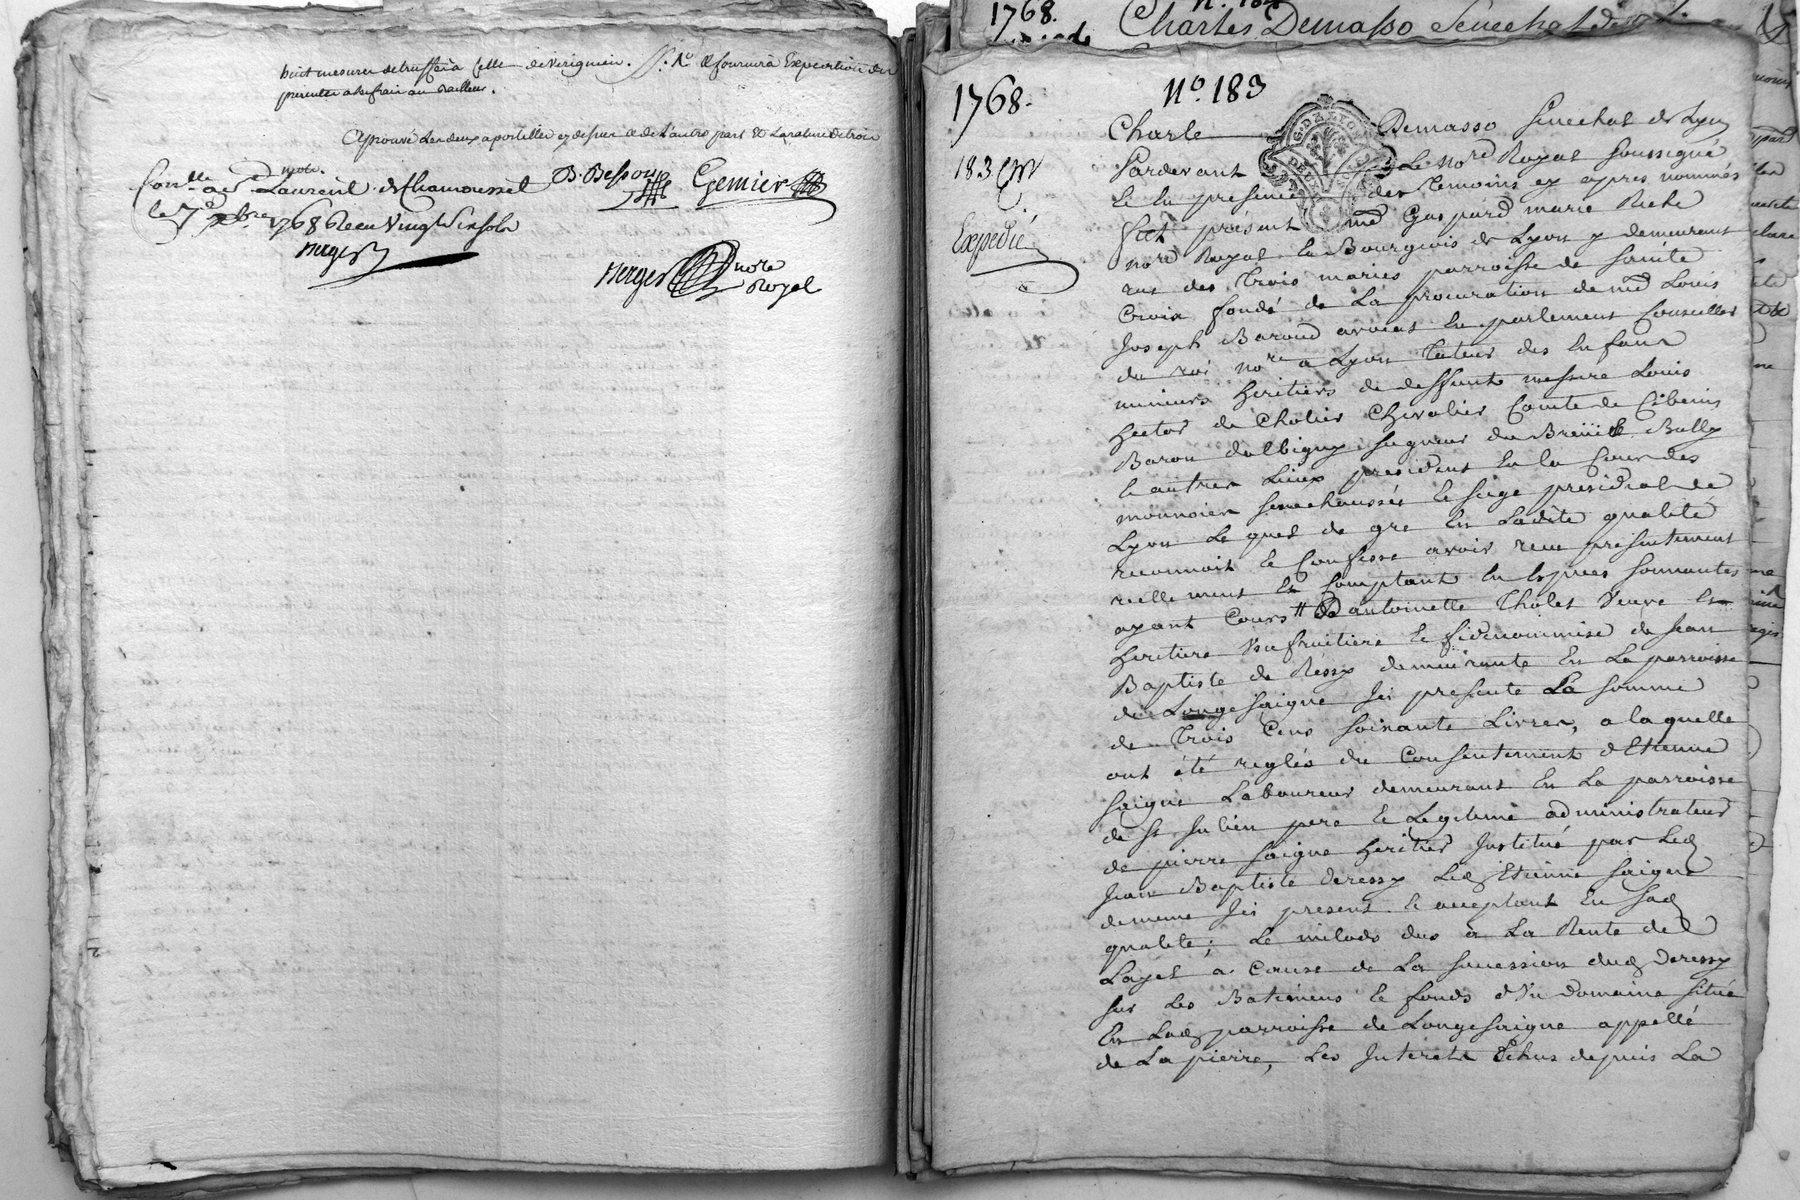 huit mesures de truffes à celle de Virignieu.
presentes a ses frais au Bailleur.
Aprouvé Les deux apostilles cy dessus & de L'autre part & La rature de trois
mots.
Con.lle a St Laurent de Chamousset
B. Besson
Gemier
le 7e xbre 1768 Receu Vingt Six sols
merger
merger nore Royal
1768.
N.º 184
Charles Demasso Senechal de
1768.
N.º 183
183
Expedié
Charle Demasso Senechal de Lyon
Pardevant Le No.re Royal soussigné
Et En presence des Temoins cy apres nommés
fut présent Me Gaspard marie Riche
no.re Royal Et Bourgeois de Lyon y demeurant
rue des Trois maries parroisse de Sainte
Croix fondé de La procuration de me Louis
Joseph Baroud avocat En parlement Conseiller
du roi no.re a Lyon Tuteur des Enfans
mineurs heritiers de deffunt messire Louis
hector de Cholier Chevalier Comte de Cibeins
Baron dalbigny Seigneur du Breüil Bully
& autres Lieux president En la Cour des
monnoies senechaussée & siege presidial de
Lyon Le quel de gré En Ladite qualité
reconnoit & Confesse avoir reçu presentement
reellement & Comptant En Especes sonnantes
ayant Cours De antoinette Tholet Veuve &
heritiere Usufruitiere & fideicommise de Jean
Baptiste de Ressy demeurante En La parroisse
de Longesaigne Ici presente La somme
de Trois Cens soixante Livres, a laquelle
ont été reglés du Consentement d'Etienne
Saigne Laboureur demeurant En La parroisse
de St Julien pere & Legitime administrateur
de pierre Saigne heritier Institué par Led
Jean Baptiste deressy Led Etienne Saigne
de meme Ici present & acceptant En Sad
qualité; Le milods dus a La Rente de
Layet a Cause de La succession dud deressy
sur Les Batimens & fonds d'Un domaine situé
En Lad parroisse de Longesaigne appellé
de La pierre, Les Interets Echus depuis La